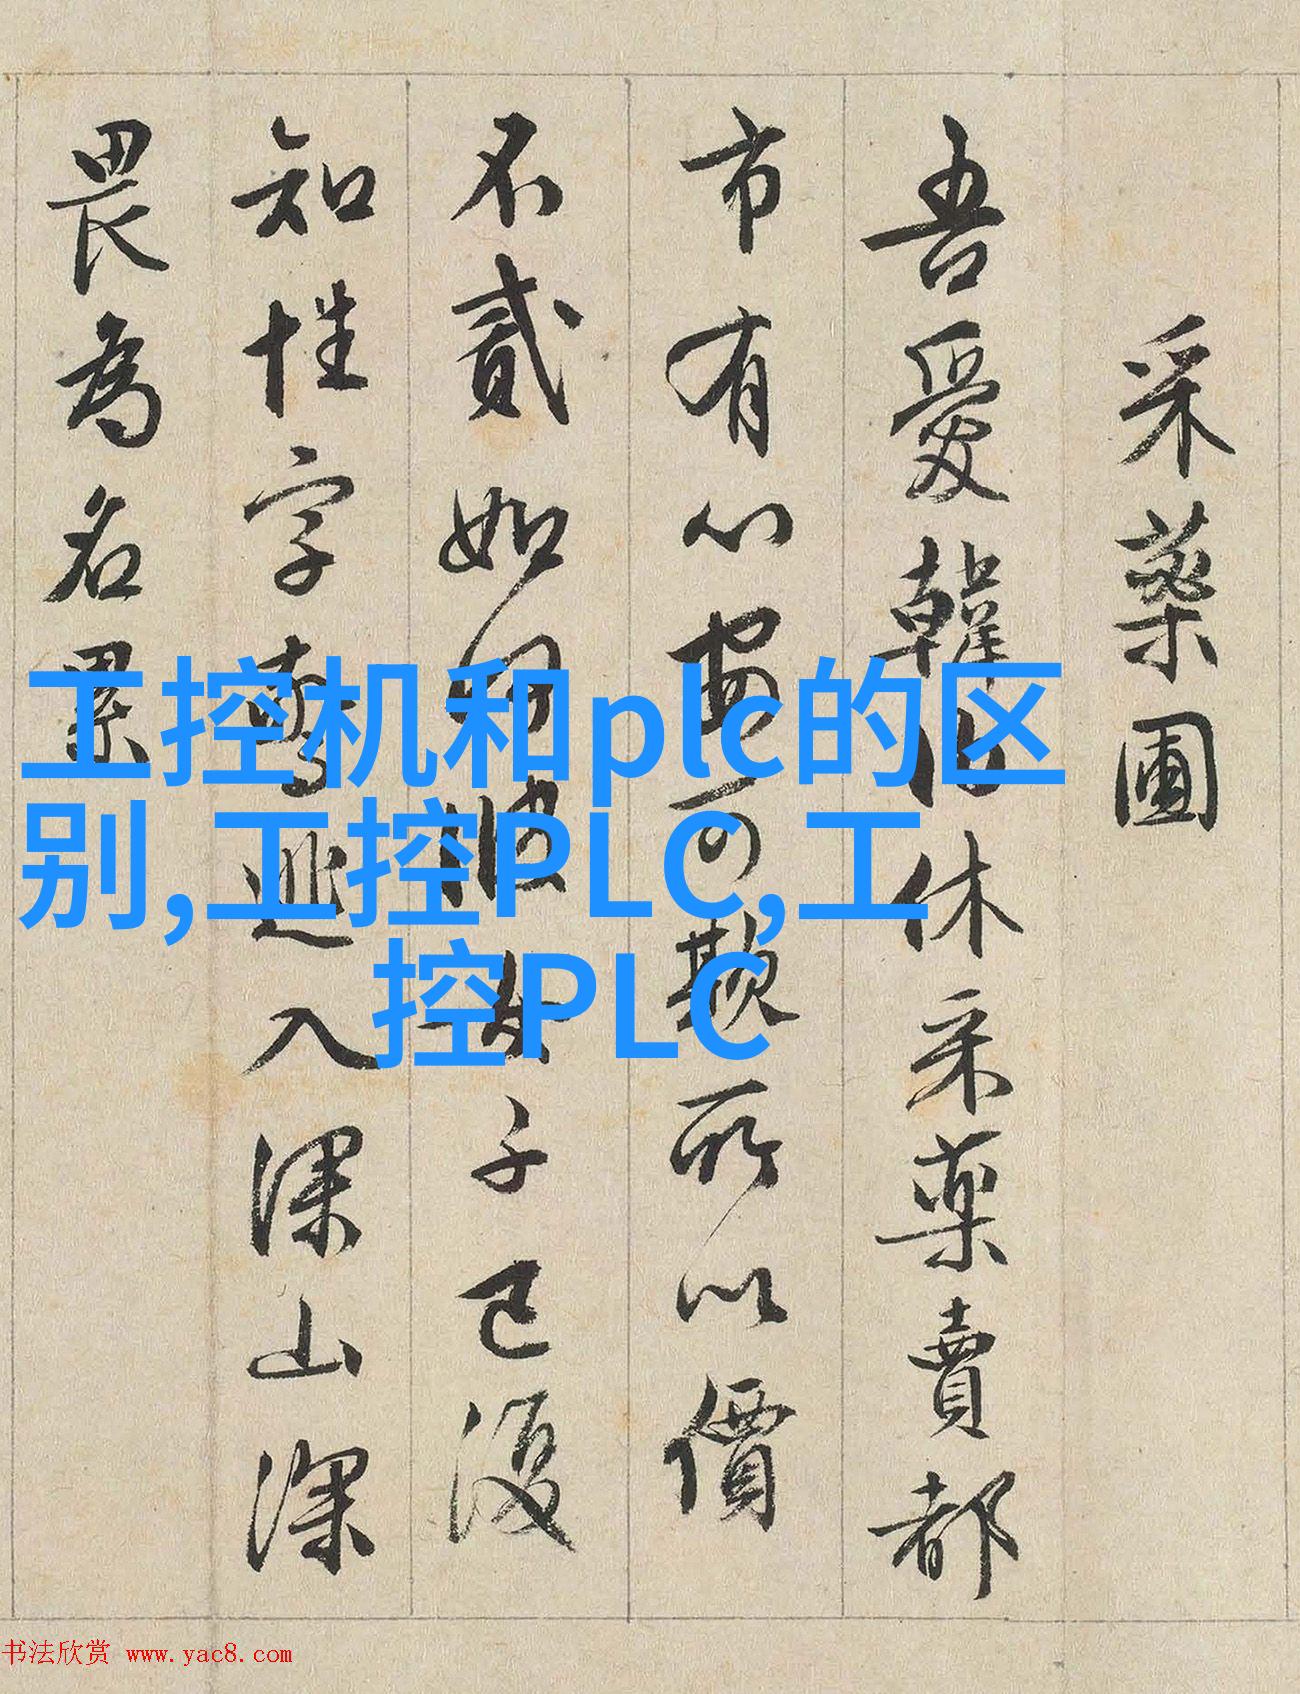 采藥圃
吾愛韓伯休采藥賣都
市有心寧可欺所以價
不貳如何彼女子已復
知姓字驚逃入深山深
畏為名累
工控机和plc的区
别,工控PLC,工
控PLC
书法欣赏 www.yac8.com